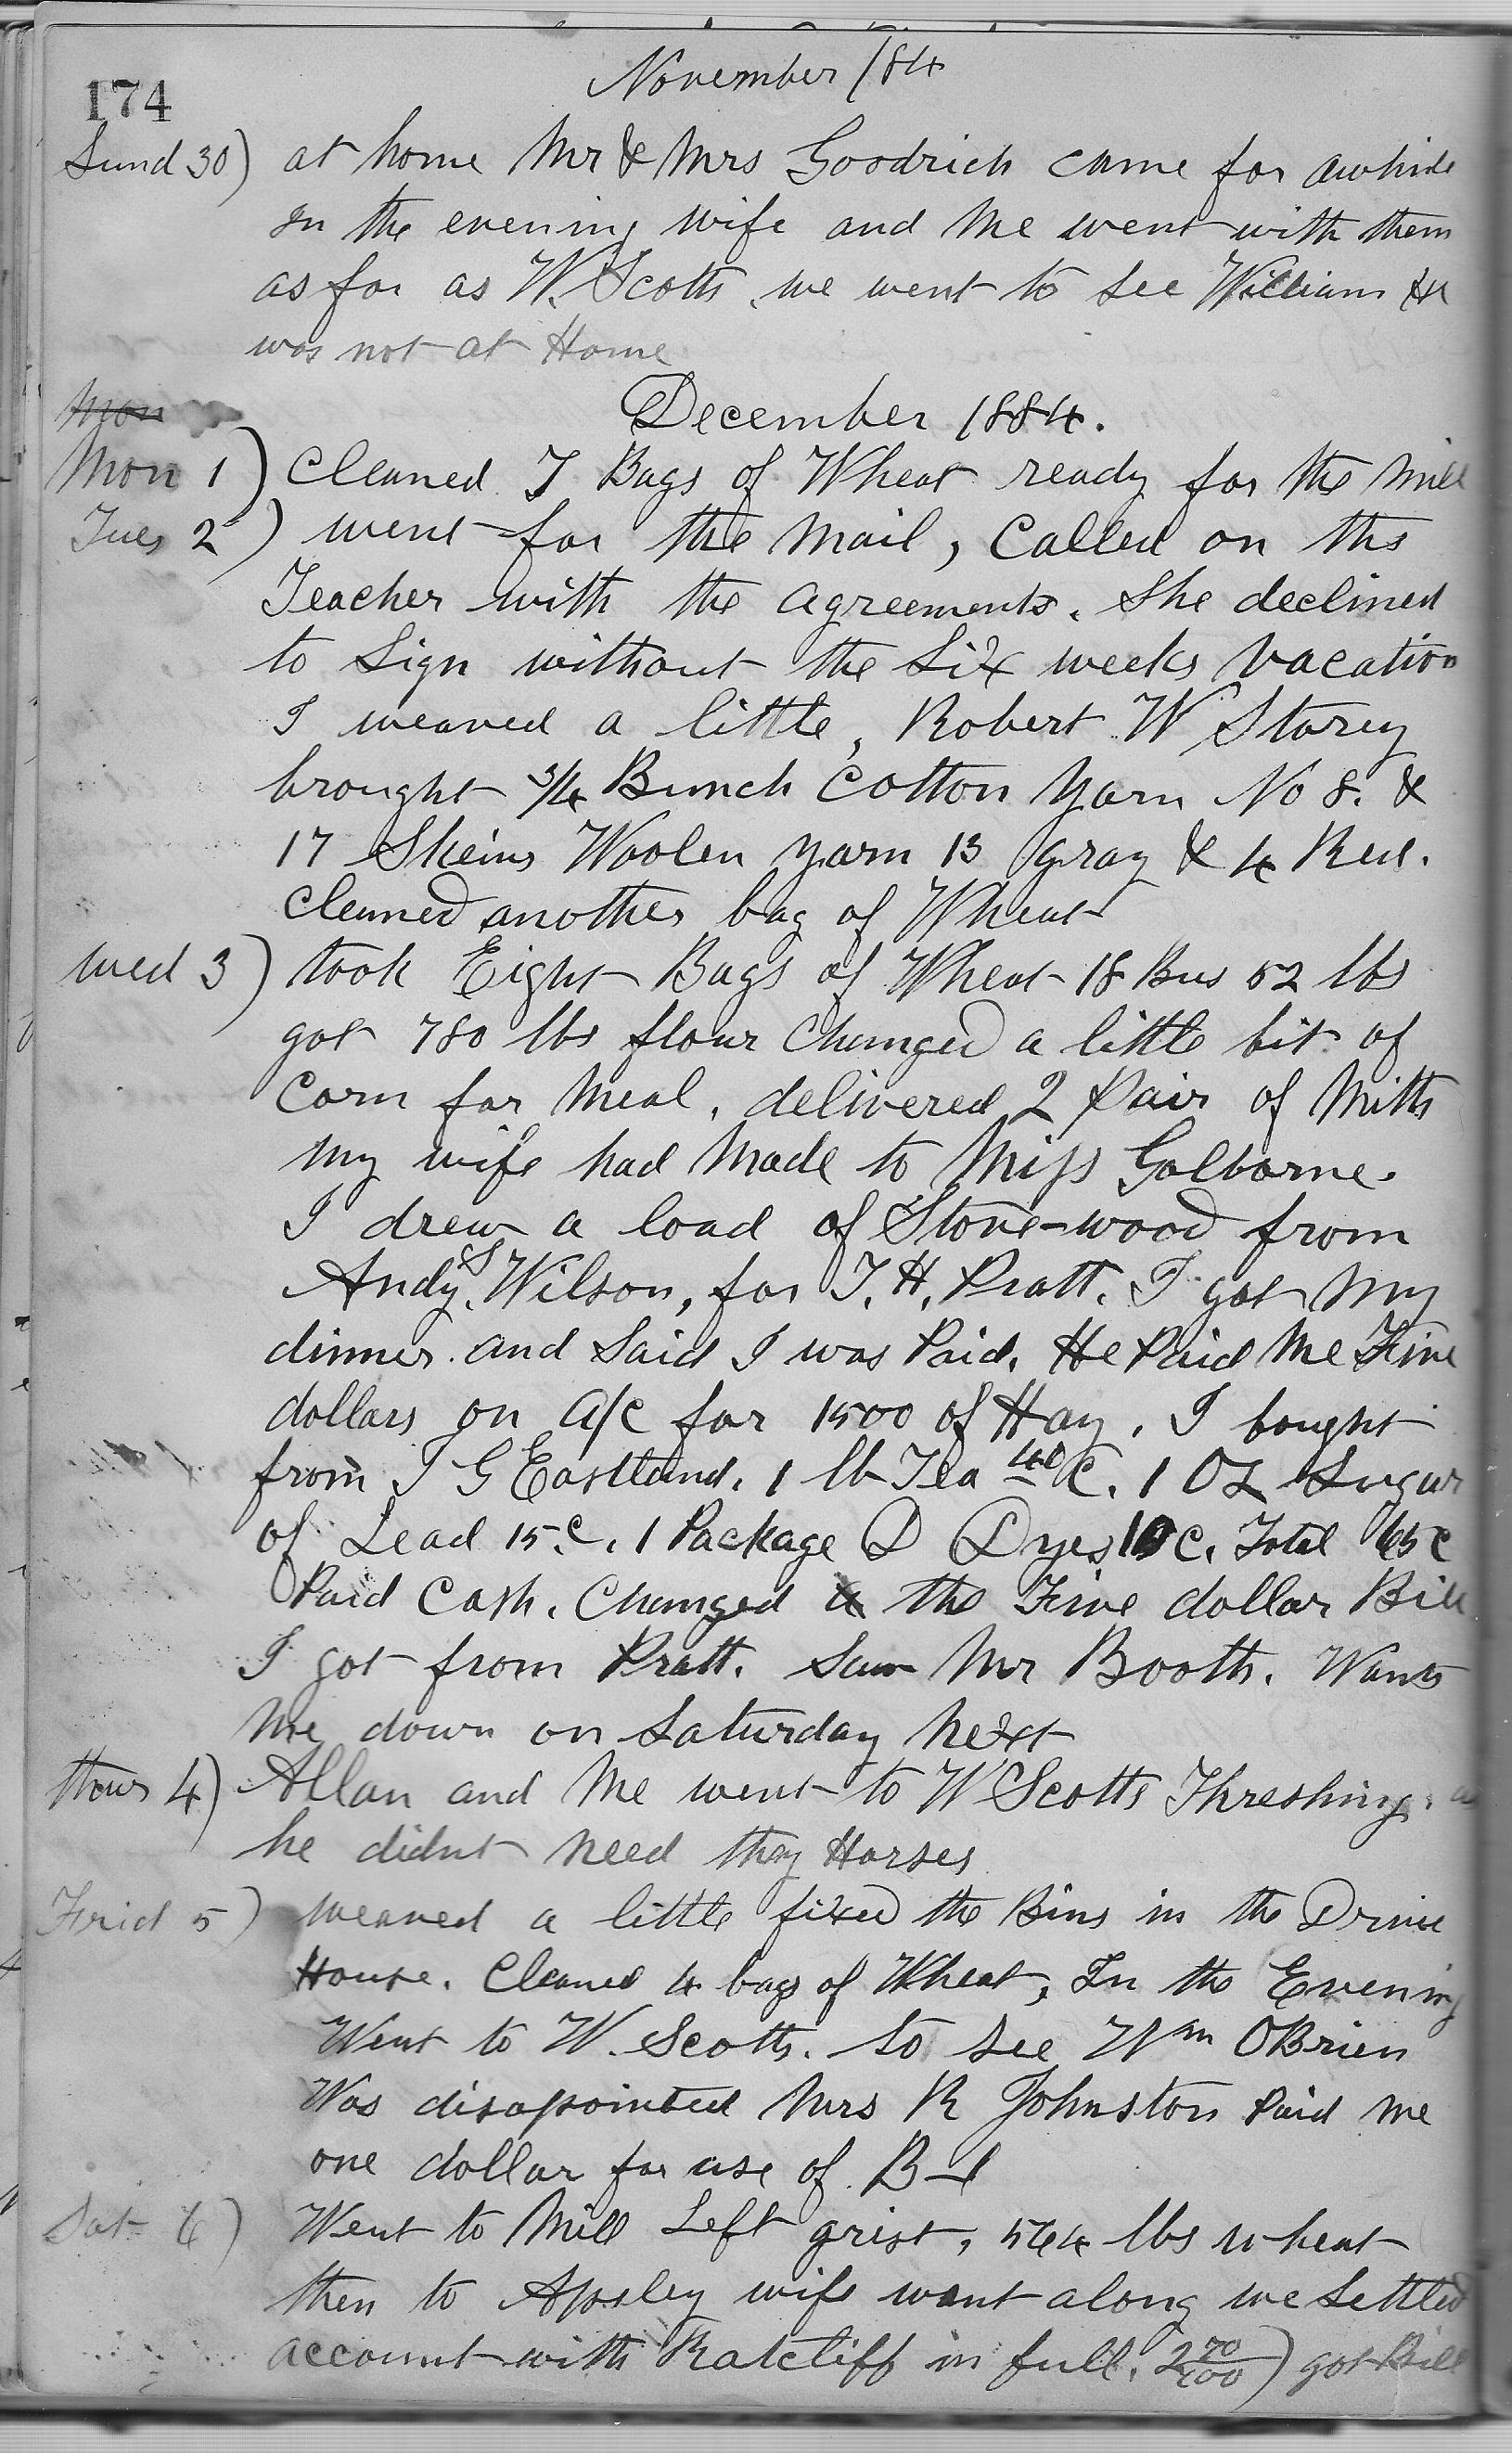 November /84
174
Sund 30) at home Mr & Mrs Goodrich came for awhile
In the evening wife and me went with them
as far as W. Scotts, we went to see William He
was not at Home
Mon
December 1884.
Mon 1) Cleaned 7 Bags of Wheat ready for the Mill
Tues 2) went for the Mail, Called on the
Teacher with the agreements. She declined
to Sign without the Six weeks vacation
I weaved a little, Robert W Storey
brought 3/4 Bunch Cotton Yarn No 8. &
17 Skeins Woolen yarn 13 gray & 4 Red.
Cleaned another bag of Wheat
Wed 3) took Eight Bags of Wheat 18 Bus 52 lbs
got 780 lbs flour Changed a little bit of
Corn for Meal, delivered 2 Pair of Mitts
My wife had Made to Miss Golborne.
I drew a load of Stove-wood from
Andy S. Wilson, for T. H. Pratt. I got My
dinner and Said I was Paid. He Paid Me Five
dollars on a/c for 1500 of Hay, I bought
from T G Eastland. 1 lb Tea 40 c. 1 Oz Sugar
of Lead 15 c. 1 Package D Dyes 10 c. Total 65 c
Paid Cash. Changed a the Five dollar Bill
I got from Pratt. Saw Mr Booth. Wants
Me down on Saturday Next
Thur 4) Allan and Me went to W Scotts Threshing.
he didnt Need they Horses
Frid 5) weaved a little fixed the Bins in the Drive
House. Cleaned 4 bags of Wheat, In the Evening
Went to W. Scotts. to see Wm OBrien
Was disapointed Mrs R Johnston Paid me
one dollar for use of B-l
Sat 6) Went to Mill Left grist, 564 lbs wheat
then to Apsley wife want along we Settled
account with Ratcliff in full. 2 70/100) got Bill